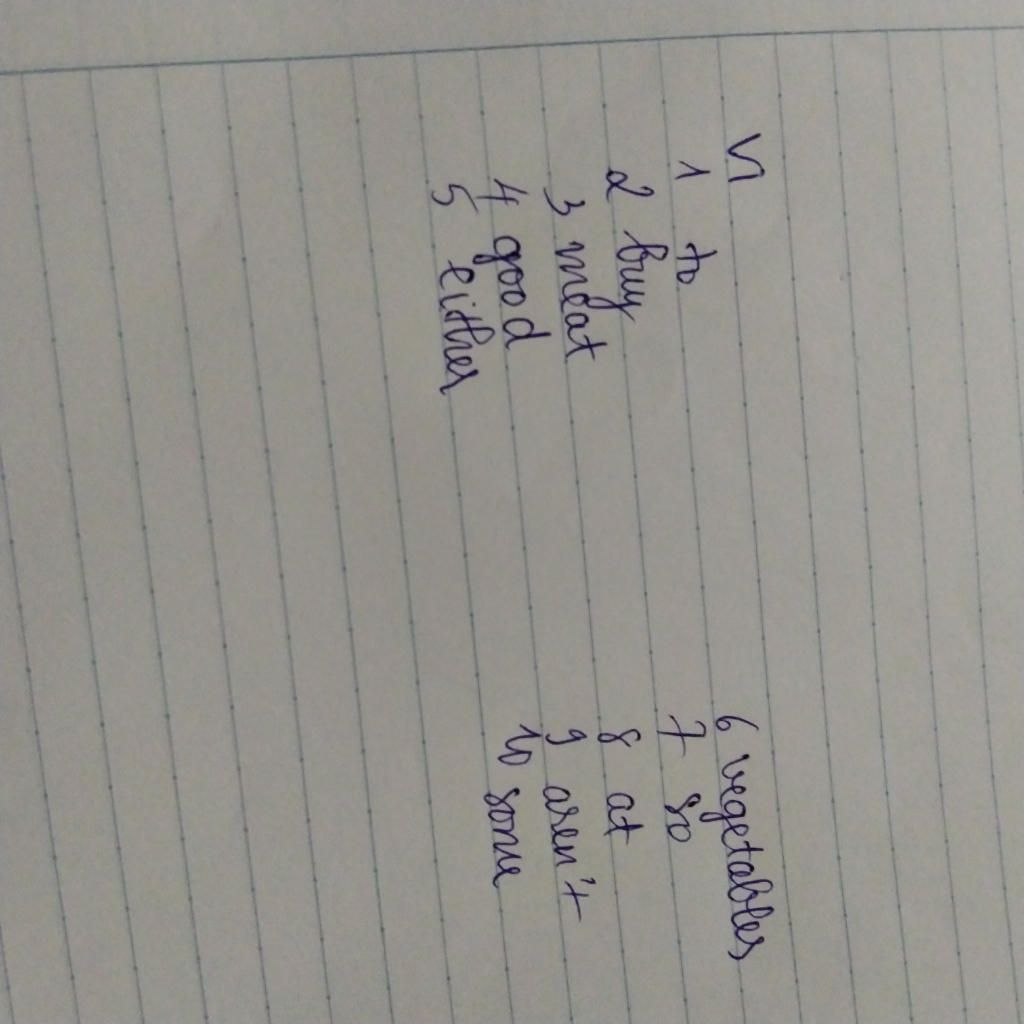 VI
1 to
2 buy
3 meat
4 good
5 either
6 vegetables
7 so
8 at
9 aren't
10 some